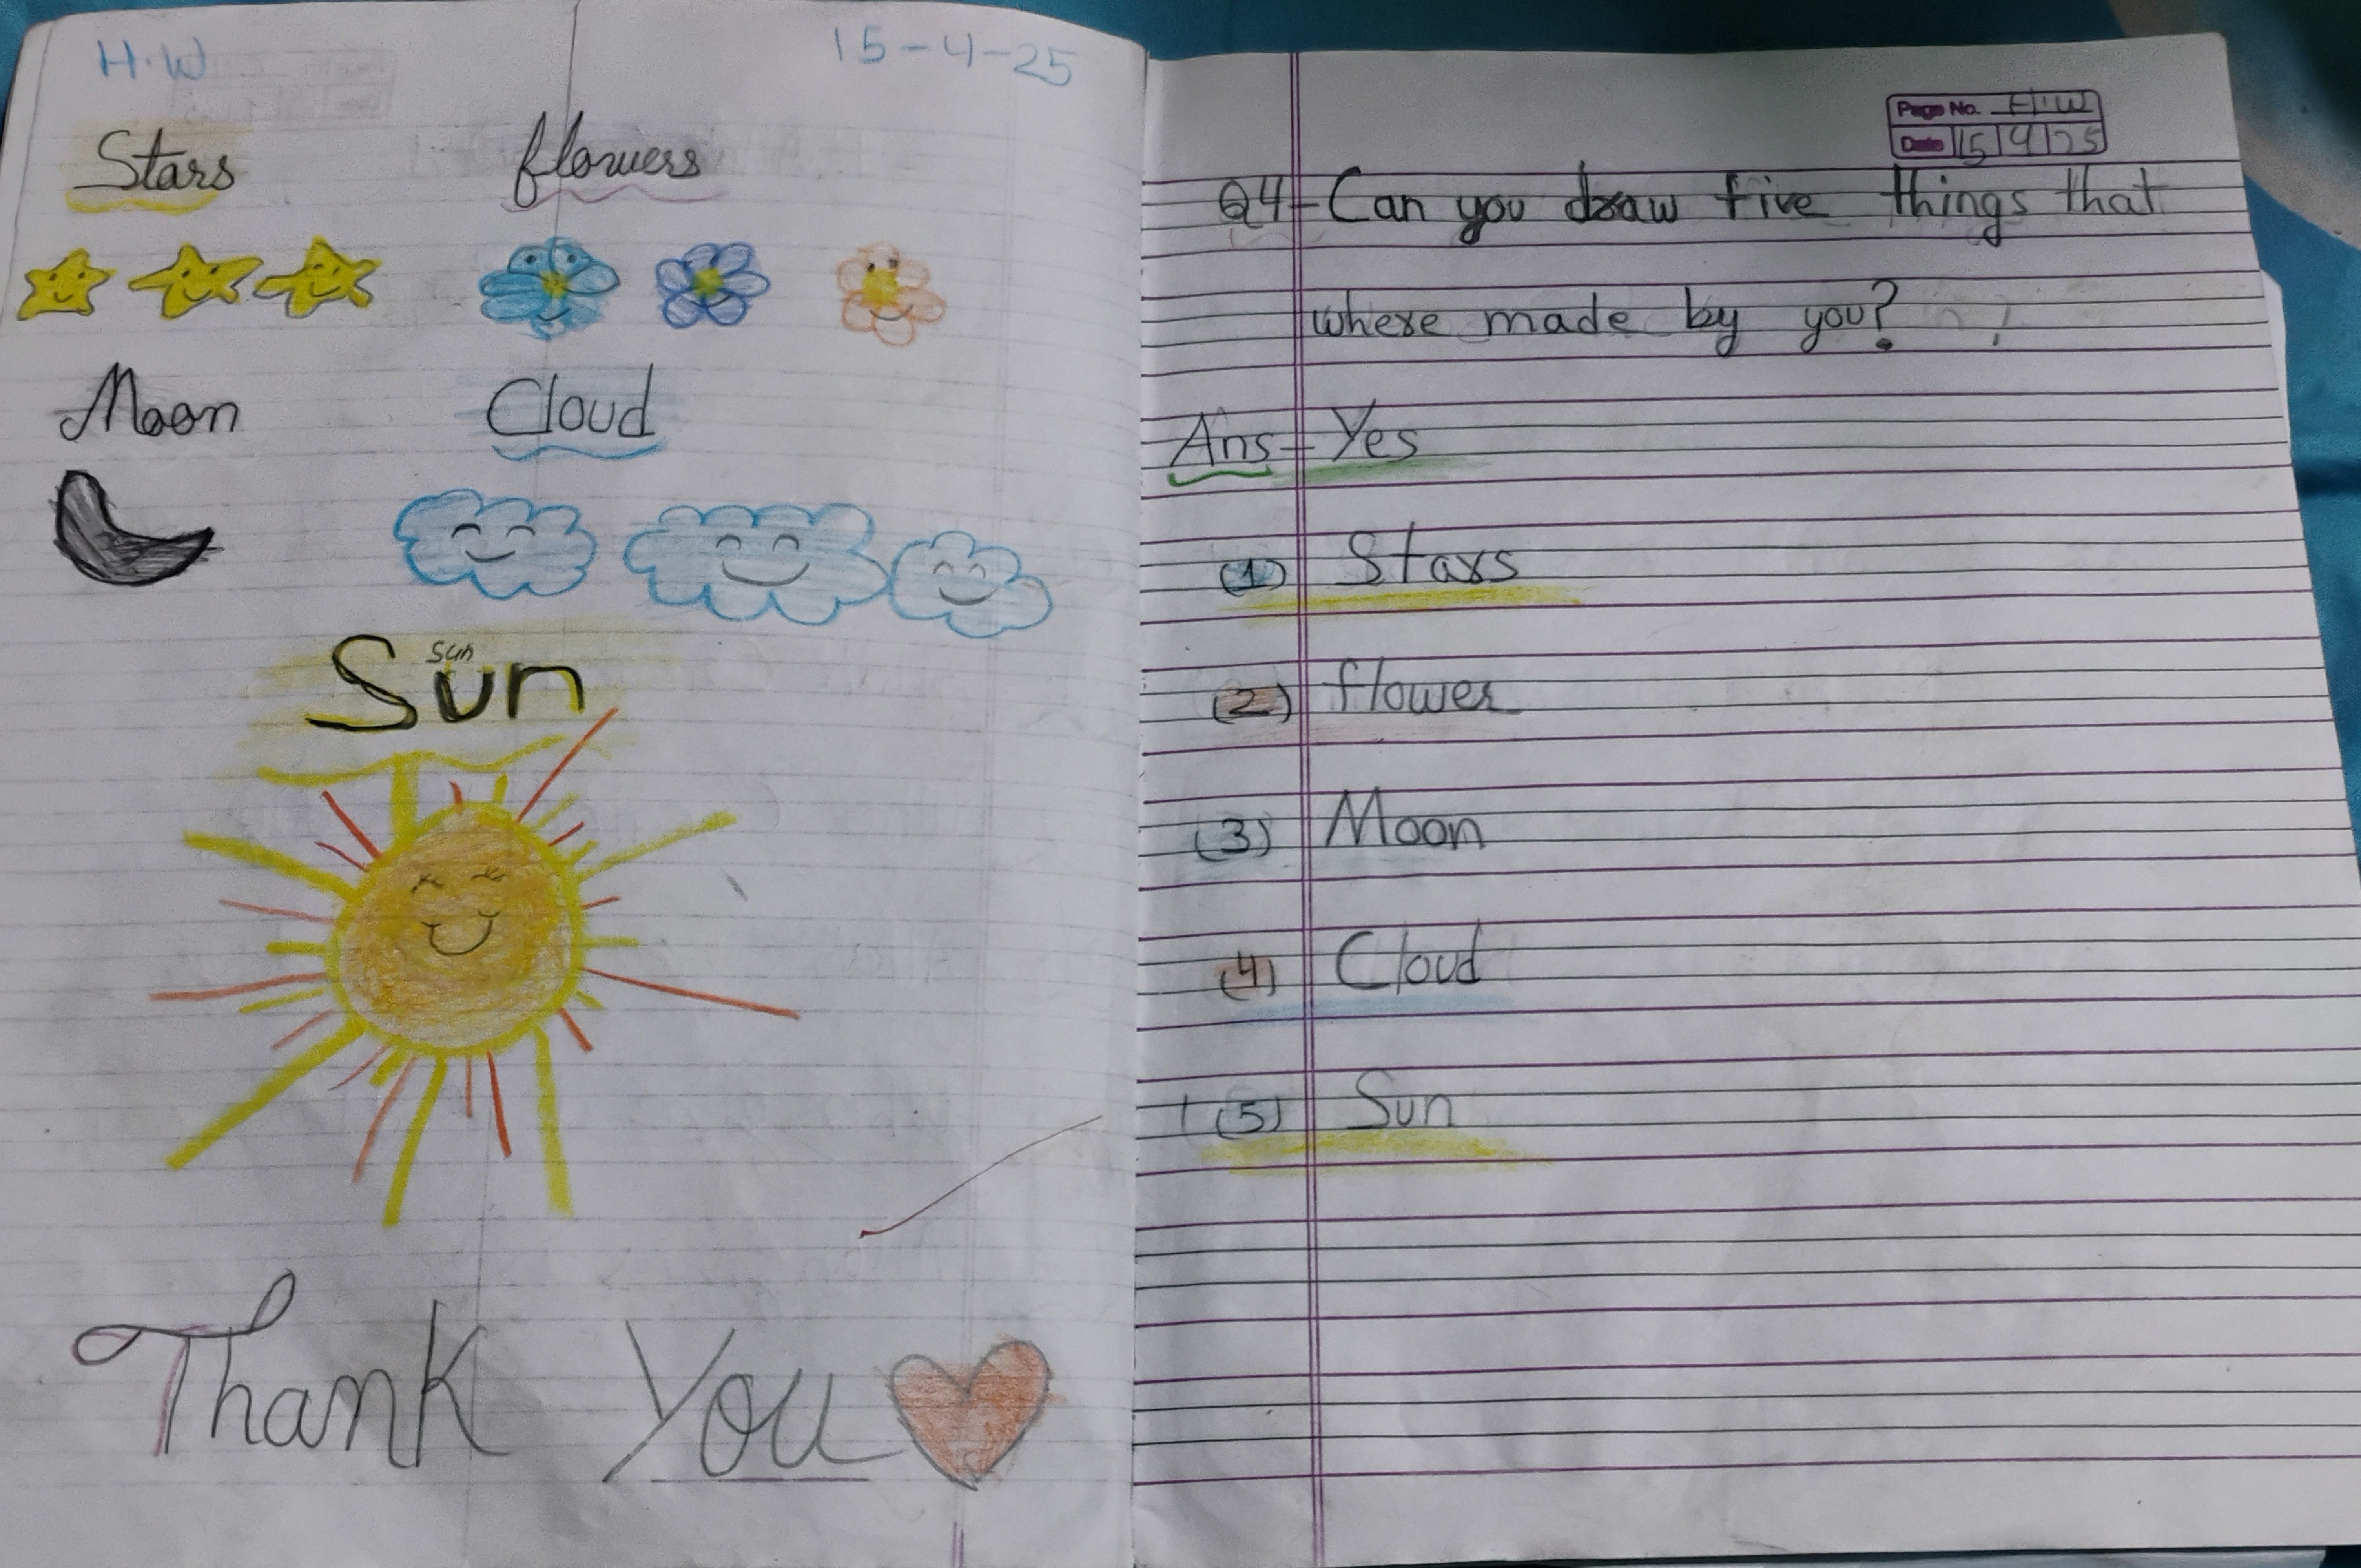 H.W 15-4-25
Stars flowers
Moon Cloud
Sun
Sun
Thank You
Page No. H.W
Date 15/4/25
Q4- Can you draw five things that
where made by you?
Ans- Yes
(1) Stars
(2) flower
(3) Moon
(4) Cloud
(5) Sun